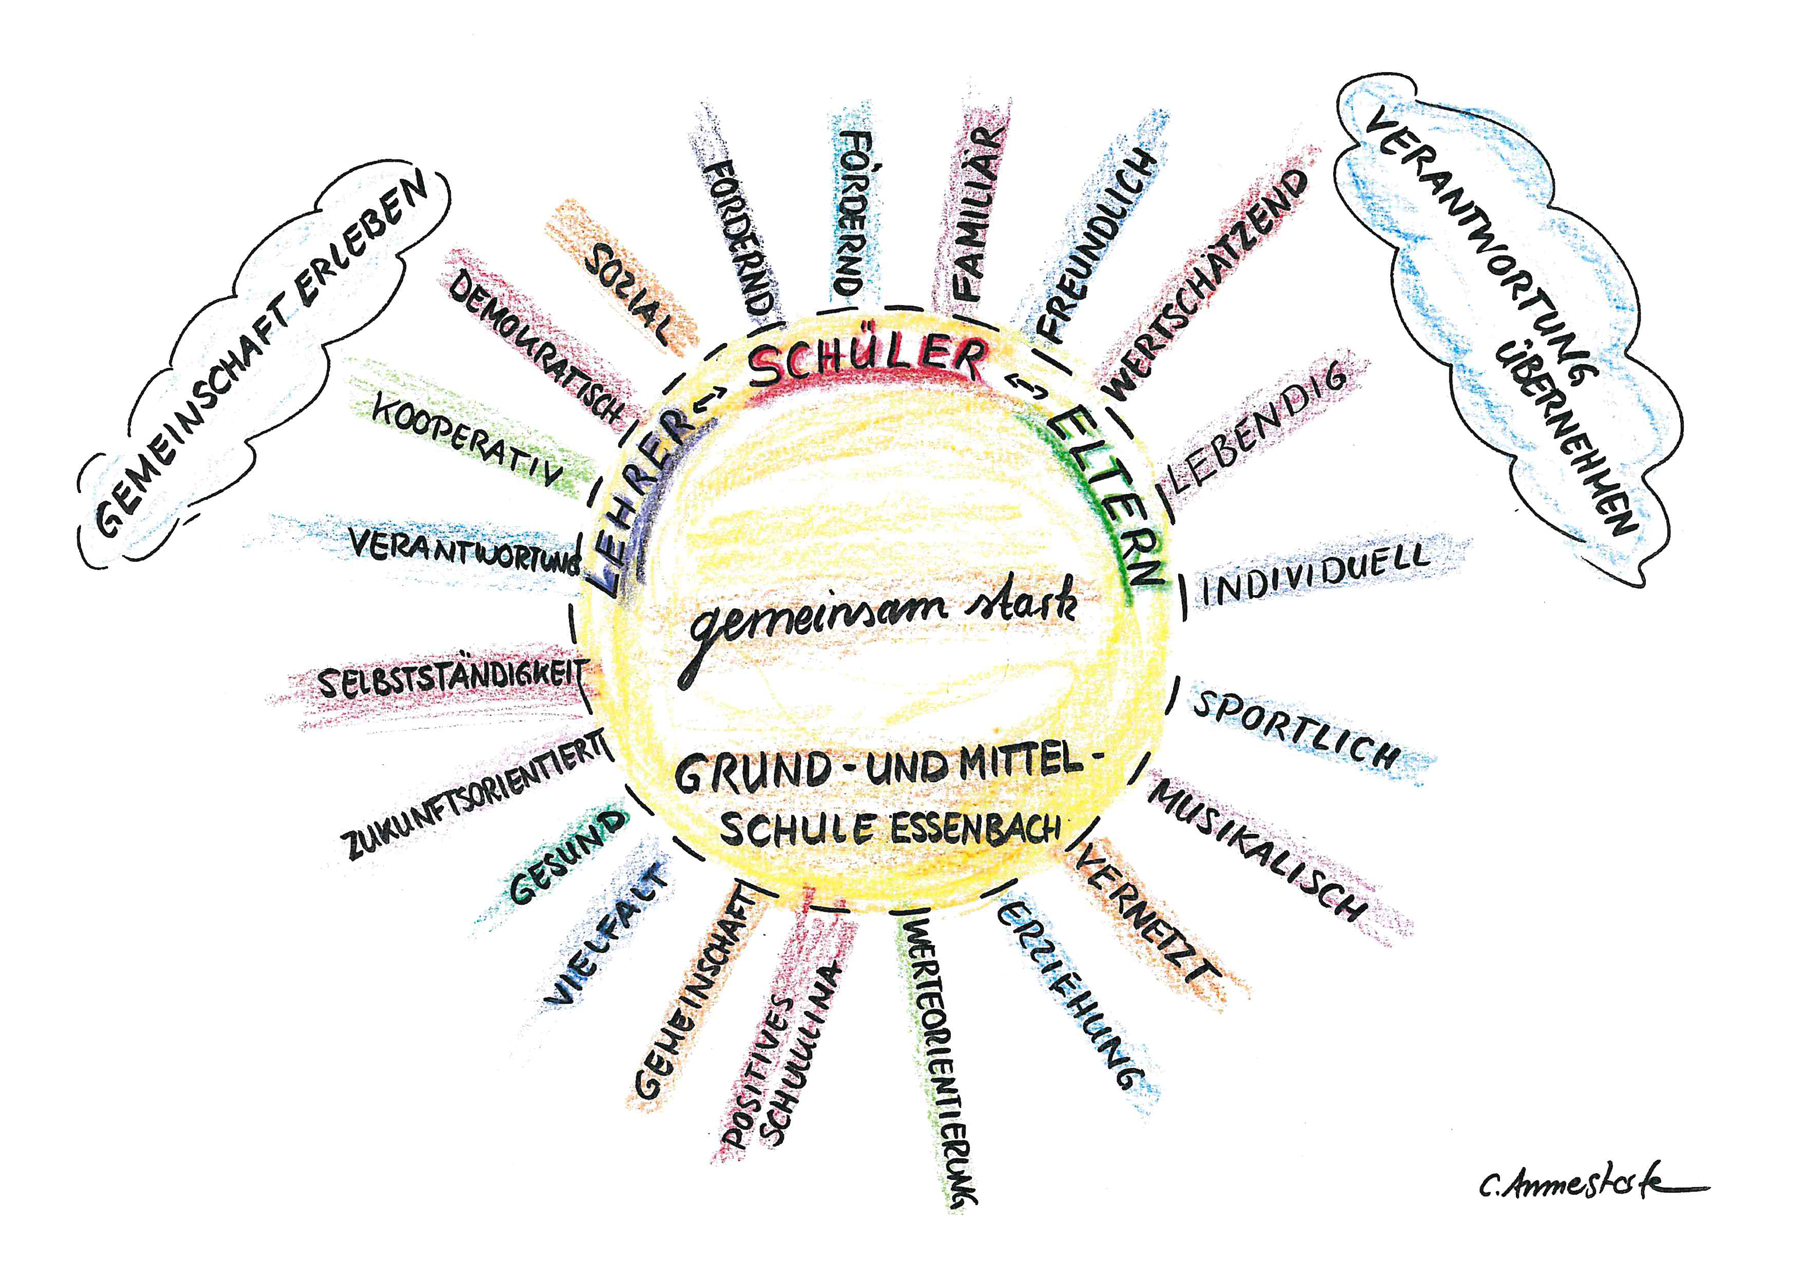 GEMEINSCHAFT ERLEBEN
VERANTWORTUNG
ÜBERNEHMEN
LEHRER
SCHÜLER
ELTERN
gemeinsam stark
GRUND-UND MITTEL-
SCHULE ESSENBACH
FORDERND
FÖRDERND
FAMILIÄR
FREUNDLICH
WERTSCHÄTZEND
LEBENDIG
INDIVIDUELL
SPORTLICH
MUSIKALISCH
VERNETZT
ERZIEHUNG
WERTEORIENTIERUNG
POSITIVES
SCHULKLIMA
GEMEINSCHAFT
VIELFALT
GESUND
ZUKUNFTSORIENTIERT
SELBSTSTÄNDIGKEIT
VERANTWORTUNG
KOOPERATIV
DEMOKRATISCH
SOZIAL